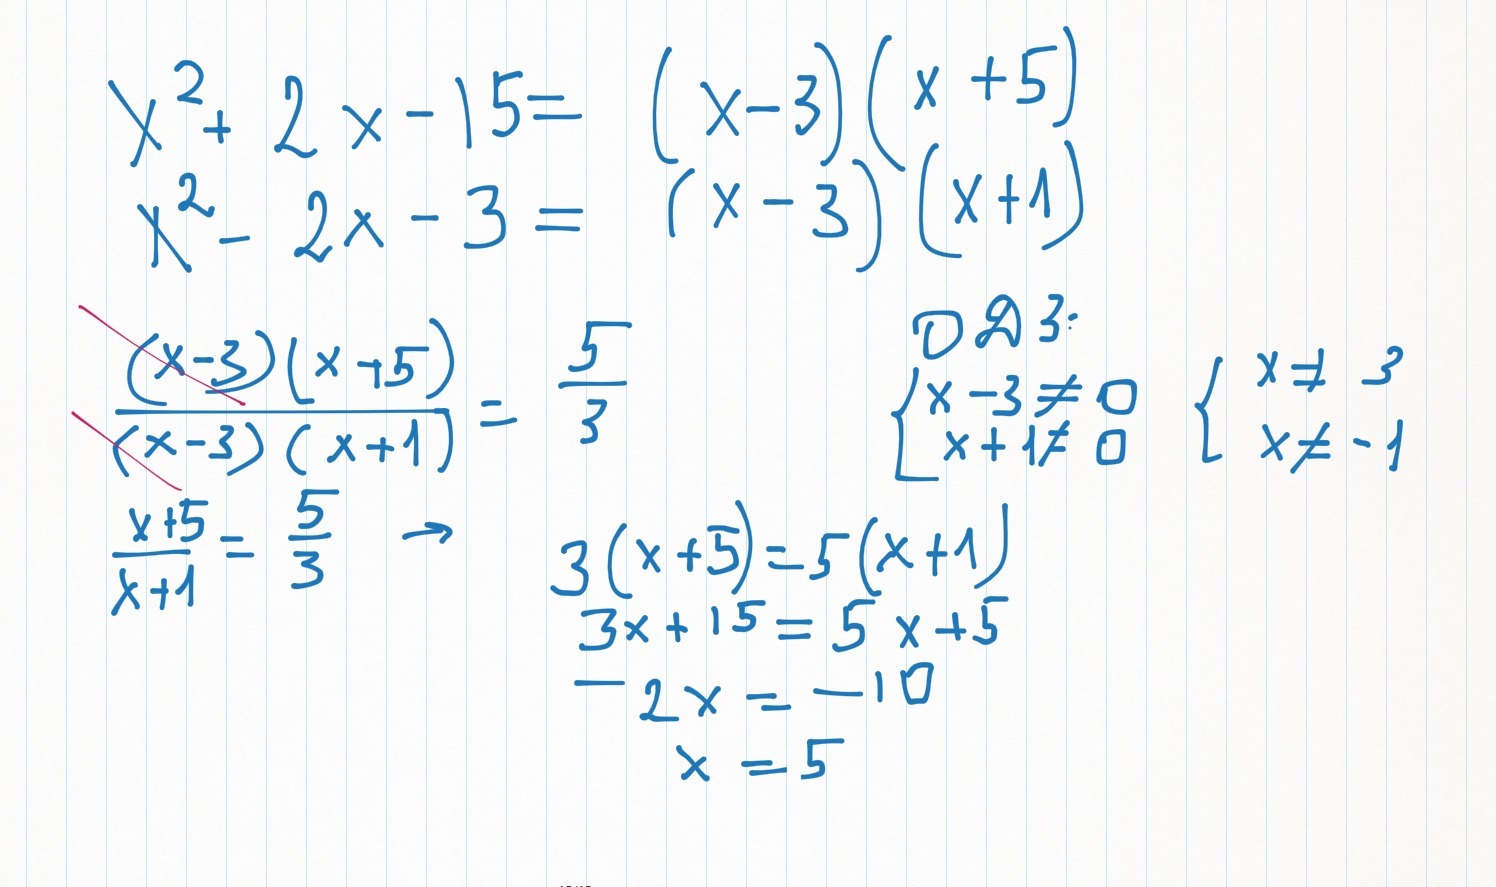 x² + 2x - 15 = (x - 3)(x + 5)
x² - 2x - 3 = (x - 3)(x + 1)
(x-3)(x+5)/(x-3)(x+1) = 5/3
ОДЗ:
{ x - 3 ≠ 0 { x ≠ 3
x + 1 ≠ 0 x ≠ -1
x+5/x+1 = 5/3 → 3(x+5) = 5(x+1)
3x + 15 = 5x + 5
-2x = -10
x = 5